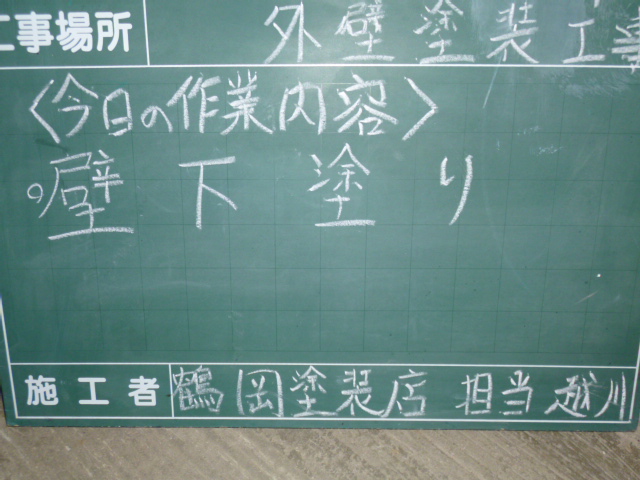 工事場所 外壁塗装工事
〈今日の作業内容〉
。壁下塗り
施工者 鶴岡塗装店 担当 越川